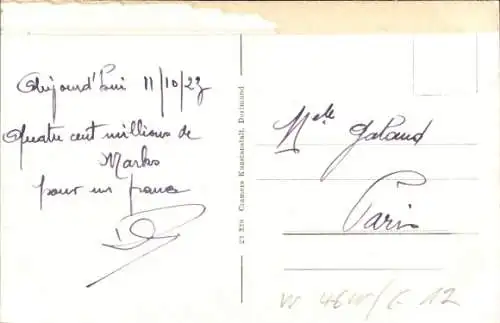 Aujourd'hui 11/10/23
Quatre cent millions de
Marks
pour un franc
27 328 Cramers Kunstanstalt, Dortmund
Melle Galand
Paris